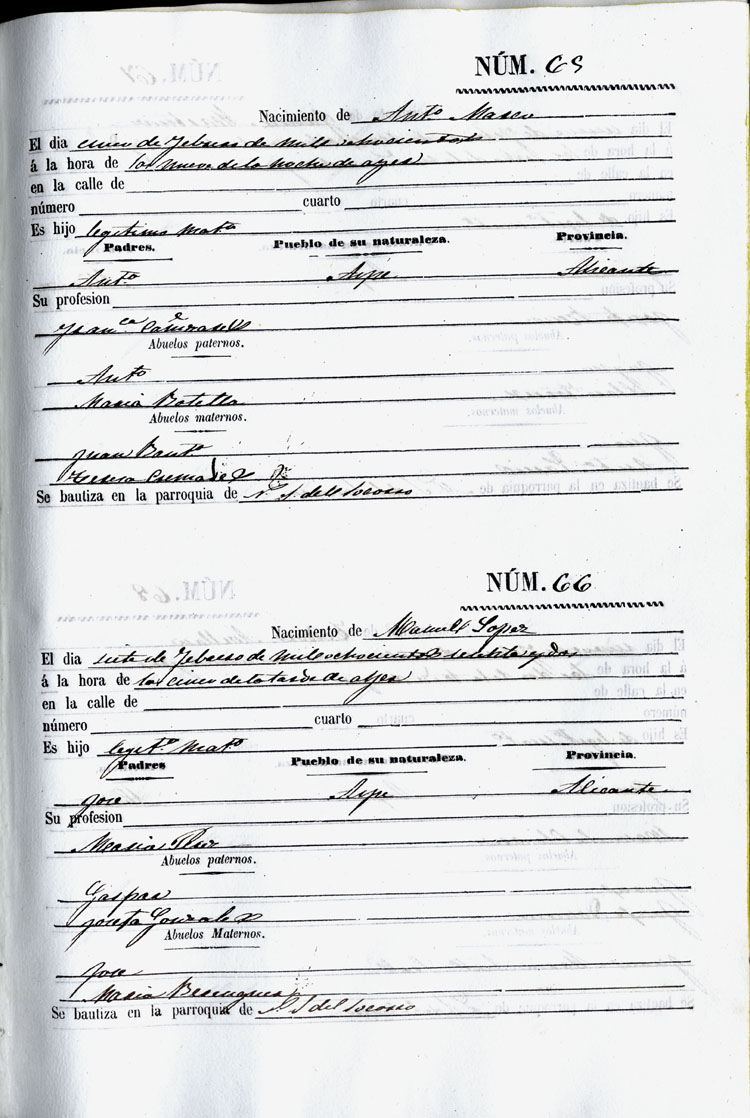 NÚM. 65
Nacimiento de Antº Masco
El dia cinco de Febrero de mil ochocientos
á la hora de las nueve de la noche de ayer
en la calle de
número cuarto
Es hijo legitimo matº
Padres. Pueblo de su naturaleza. Provincia.
Antº Aspe Alicante
Su profesion
Franca
Abuelos paternos.
Antº
Maria Botella
Abuelos maternos.
Juan Bautª
Teresa Cremades
Se bautiza en la parroquia de N. S. del Socorro
NÚM. 66
Nacimiento de Manuel Lopez
El dia siete de Febrero de mil ochocientos setenta y dos
á la hora de las cinco de la tarde de ayer
en la calle de
número cuarto
Es hijo legitº matº
Padres Pueblo de su naturaleza. Provincia.
Jose Aspe Alicante
Su profesion
Maria
Abuelos paternos.
Gaspar
Josefa Gonzalez
Abuelos Maternos.
Jose
Maria Berenguer
Se bautiza en la parroquia de N. S. del Socorro